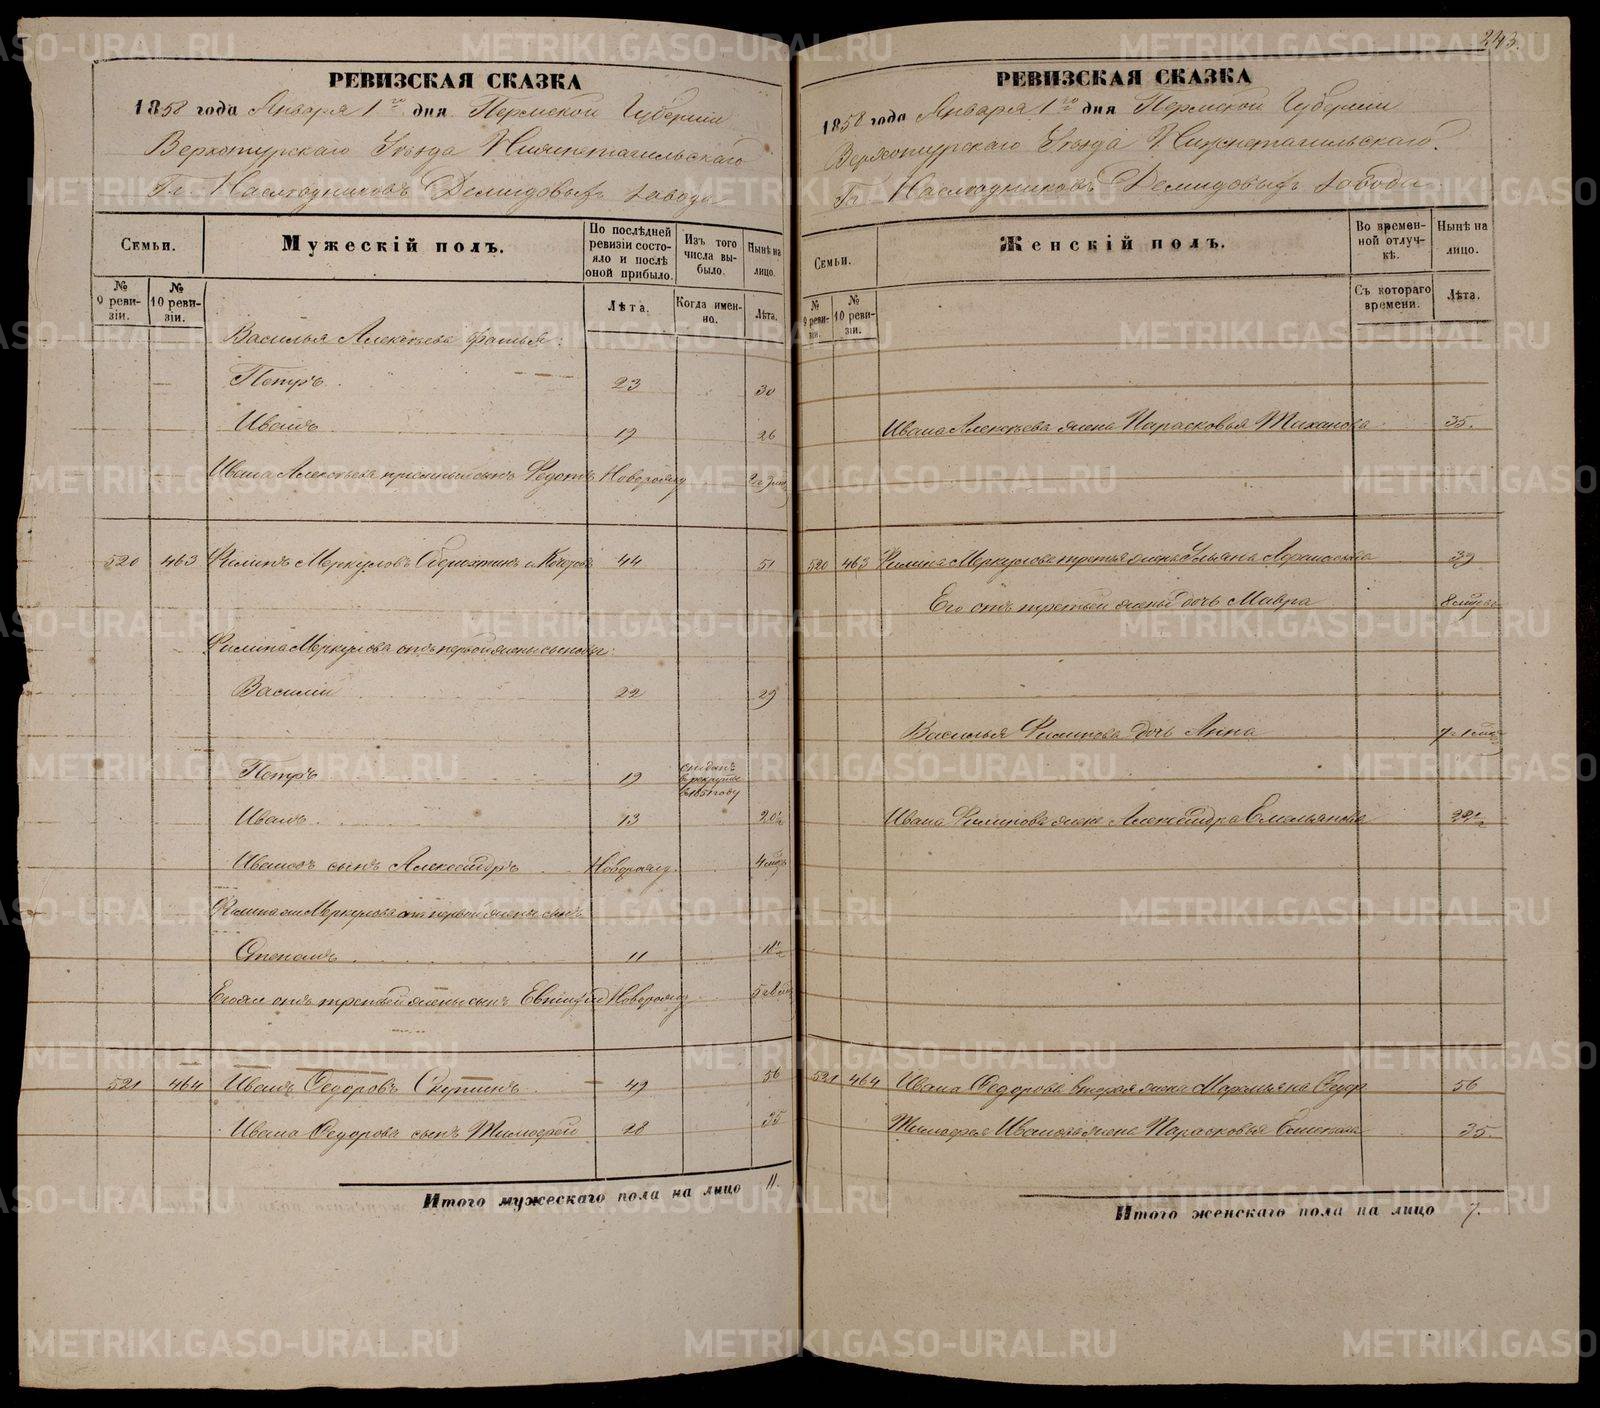 243.
РЕВИЗСКАЯ СКАЗКА
1858 года Января 1го дня Пермской Губернии
Верхотурскаго Уѣзда Нижнетагильскаго
Гг. Наслѣдниковъ Демидовыхъ завода
Семьи.
Мужескій полъ.
По послѣдней ревизіи состояло и послѣ оной прибыло.
Изъ того числа выбыло.
Нынѣ на лицо.
№ 9 ревизіи.
№ 10 ревизіи.
Лѣта.
Когда именно.
Лѣта.
Василья Алексѣева братья:
Петръ 23 30
Иванъ 19 26
Ивана Алексѣева сынъ Федотъ Новорожд
520 463 Филипъ Меркуловъ 44 51
Филипа Меркулова отъ первой жены сыновья:
Василій 22 29
Петръ 19 сданъ в рекруты в 1851 году
Иванъ 13 20½
Ивановъ сынъ Александръ Новорожд. 4 мѣс
Филипа Меркулова отъ первой жены сынъ
Степанъ 11 18½
Его же отъ третьей жены сынъ Новорожд
521 464 Иванъ Федоровъ Скутинъ 49 56
Ивана Федорова сынъ Тимофей 28 35
Итого мужескаго пола на лицо 11.
РЕВИЗСКАЯ СКАЗКА
1858 года Января 1го дня Пермской Губерніи
Верхотурскаго Уѣзда Нижнетагильскаго.
Гг. Наслѣдниковъ Демидовыхъ завода
Семьи.
Женскій полъ.
Во временной отлучкѣ.
Нынѣ на лицо.
№ 9 ревизіи.
№ 10 ревизіи.
Съ котораго времени.
Лѣта.
Ивана Алексѣева жена Парасковья 35.
520 463 Филипа Меркулова третья жена Ульяна 39
Его отъ третьей жены дочь Мавра
Василья Филипова дочь Анна
Ивана Филипова жена Александра Емельянова
521 464 Ивана Федорова вторая жена 56
Тимофея Иванова жена Парасковья 35.
Итого женскаго пола на лицо 7.
METRIKI.GASO-URAL.RU